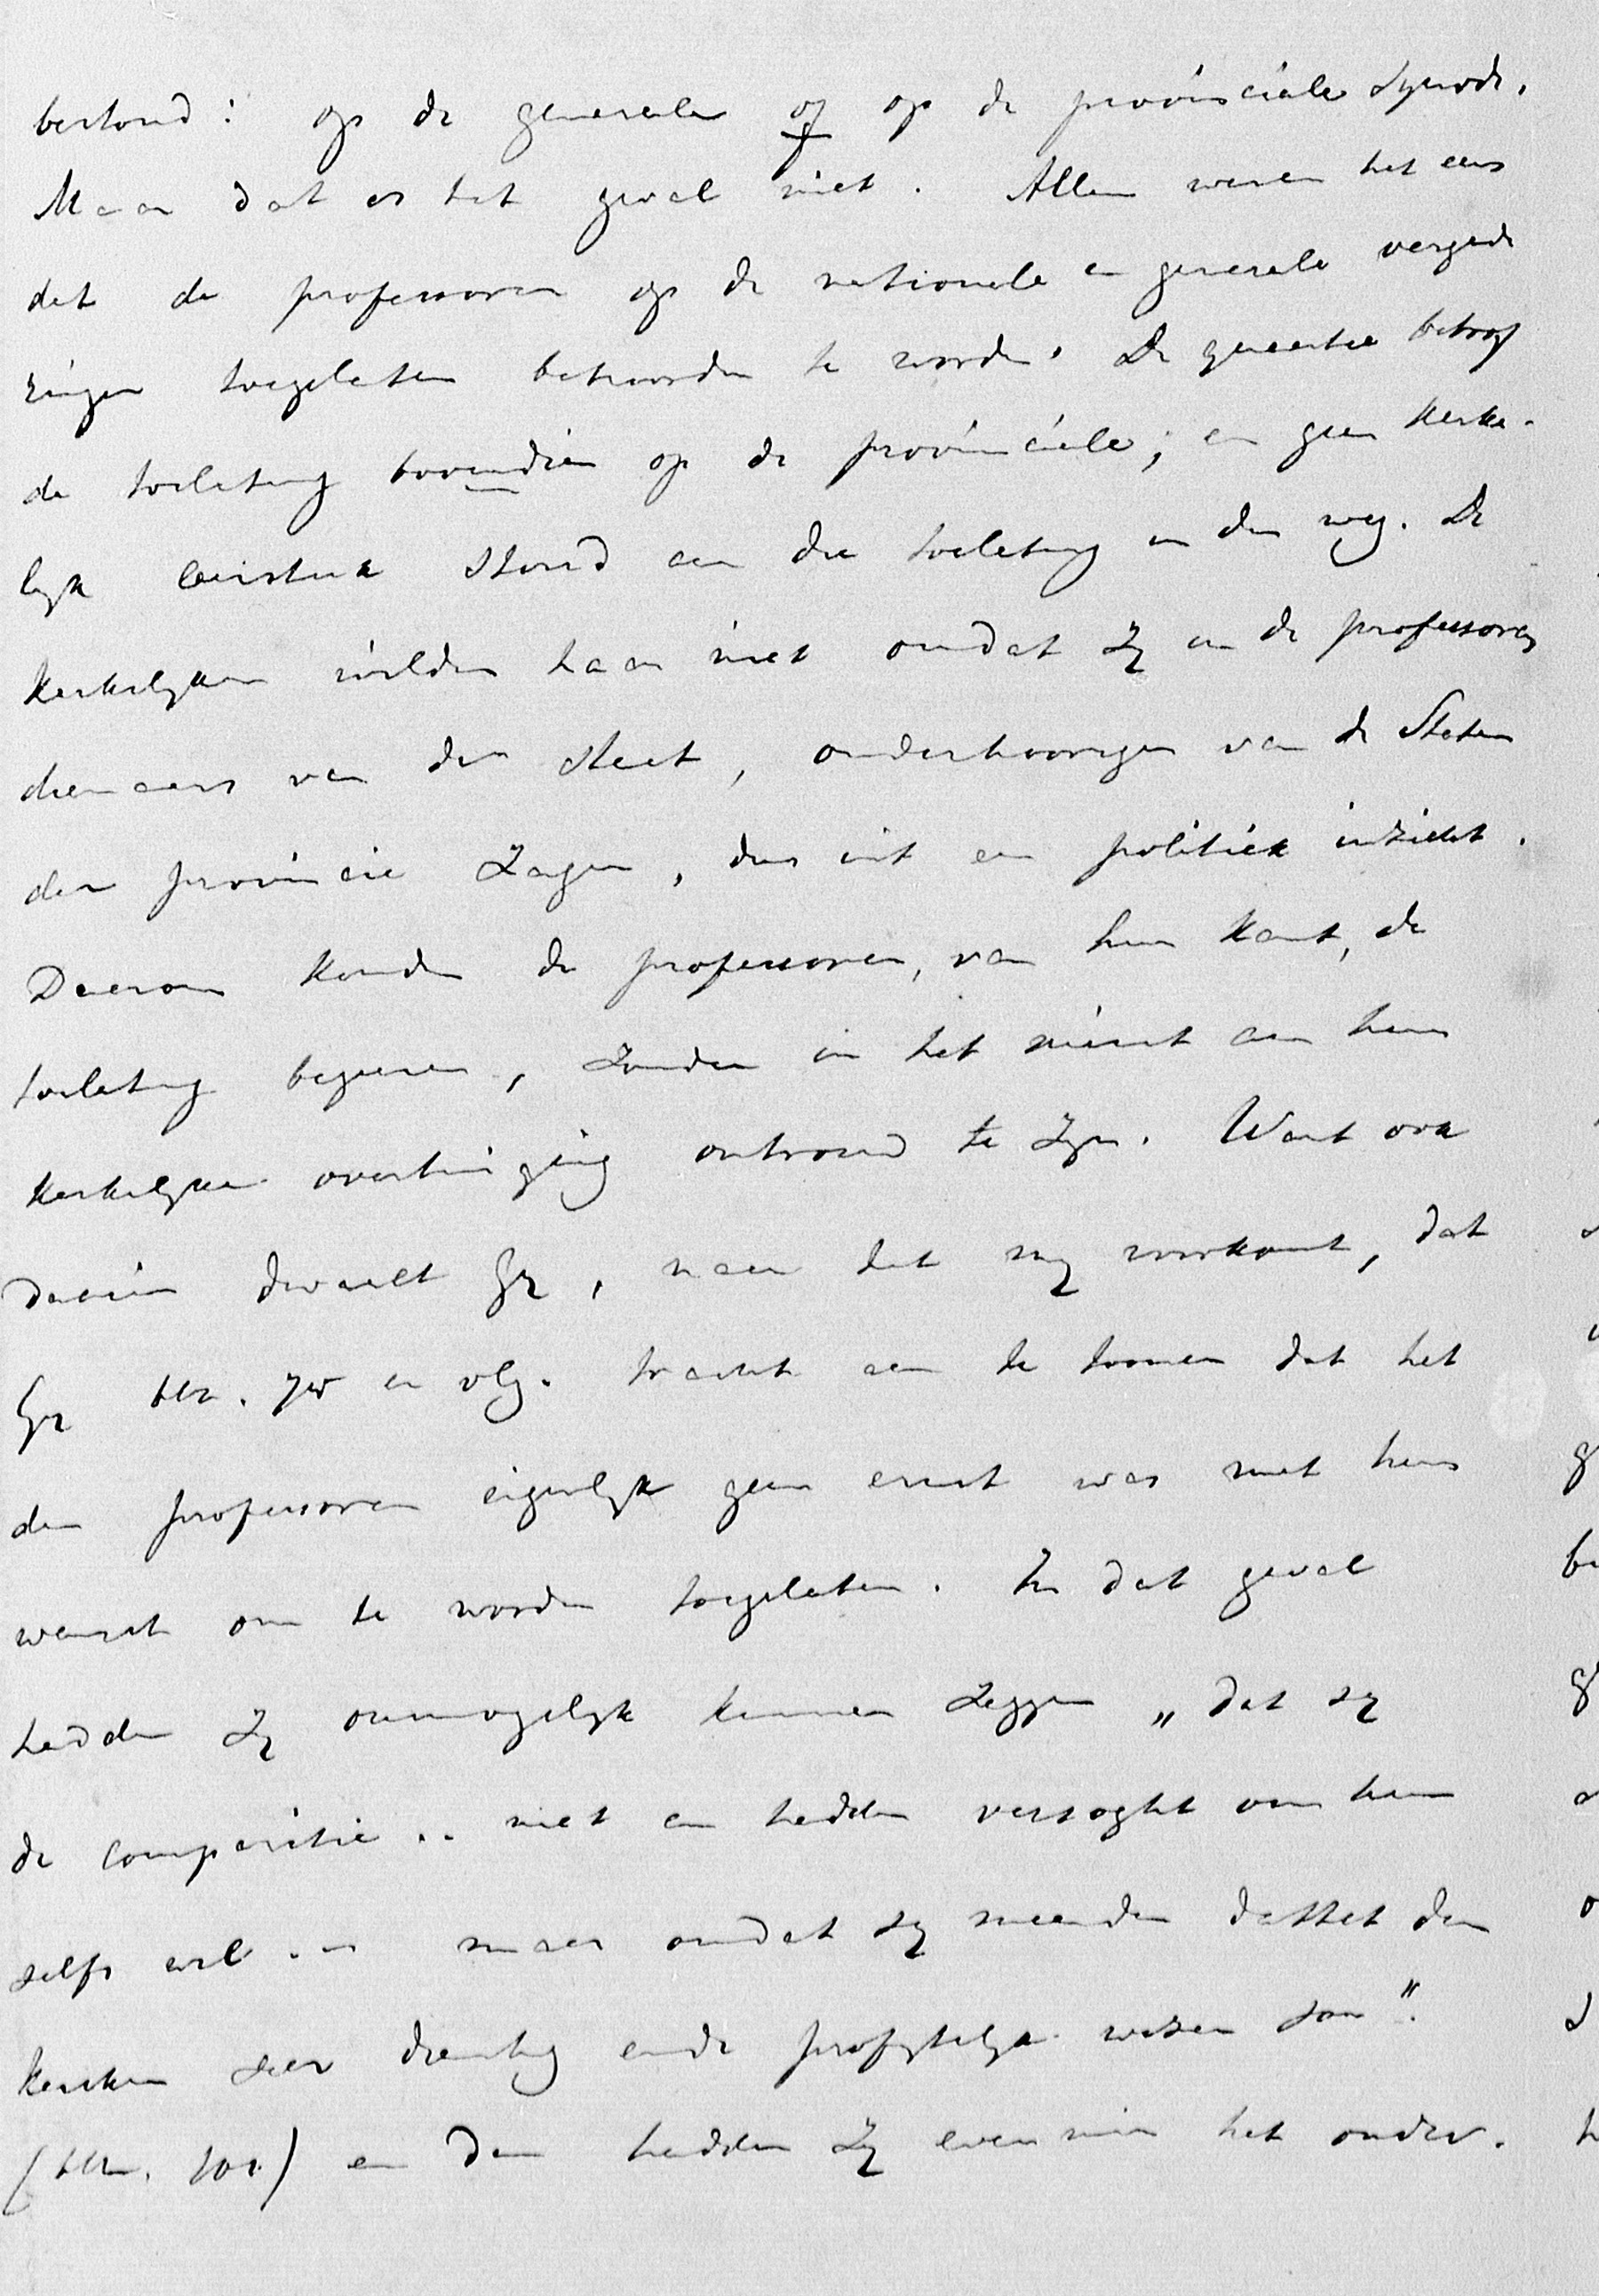 bestond: op de generale of op de provinciale Synode.
Maar dat is het geval niet. Allen waren het eens
dat de professoren op de nationale en generale vergade
ringen toegelaten behoorden te worden. De quaestie betrof
de toelating bovendien op de provinciale; en geen kerke-
lyk leerstuk stond aan die toelating in den weg. De
kerkelyken wilden haar niet omdat zy in de professoren
dienaars van den staat, onderhoorigen van de Staten
der provincie zagen, dus uit een politiek inzicht.
Daarom konden de professoren, van hun kant, de
toelating begeeren, zonder in het minst aan hun
kerkelyke overtuiging ontrouw te zyn. Want ook
daarin dwaalt Gy, naar het my voorkomt, dat
Gy blz. en vlg. tracht aan te toonen dat het
den professoren eigenlyk geen ernst was met hun
wensch om te worden toegelaten. In dat geval
hadden zy onmogelyk kunnen zeggen „dat sy
de comparitie .. niet en hadden versoght om hun
selfs wil ... maer omdat sy meenden dattet den
kerken seer dienstig ende profytelyk wesen sou".
(blz. 101) en dan hadden zy evenmin het onder-